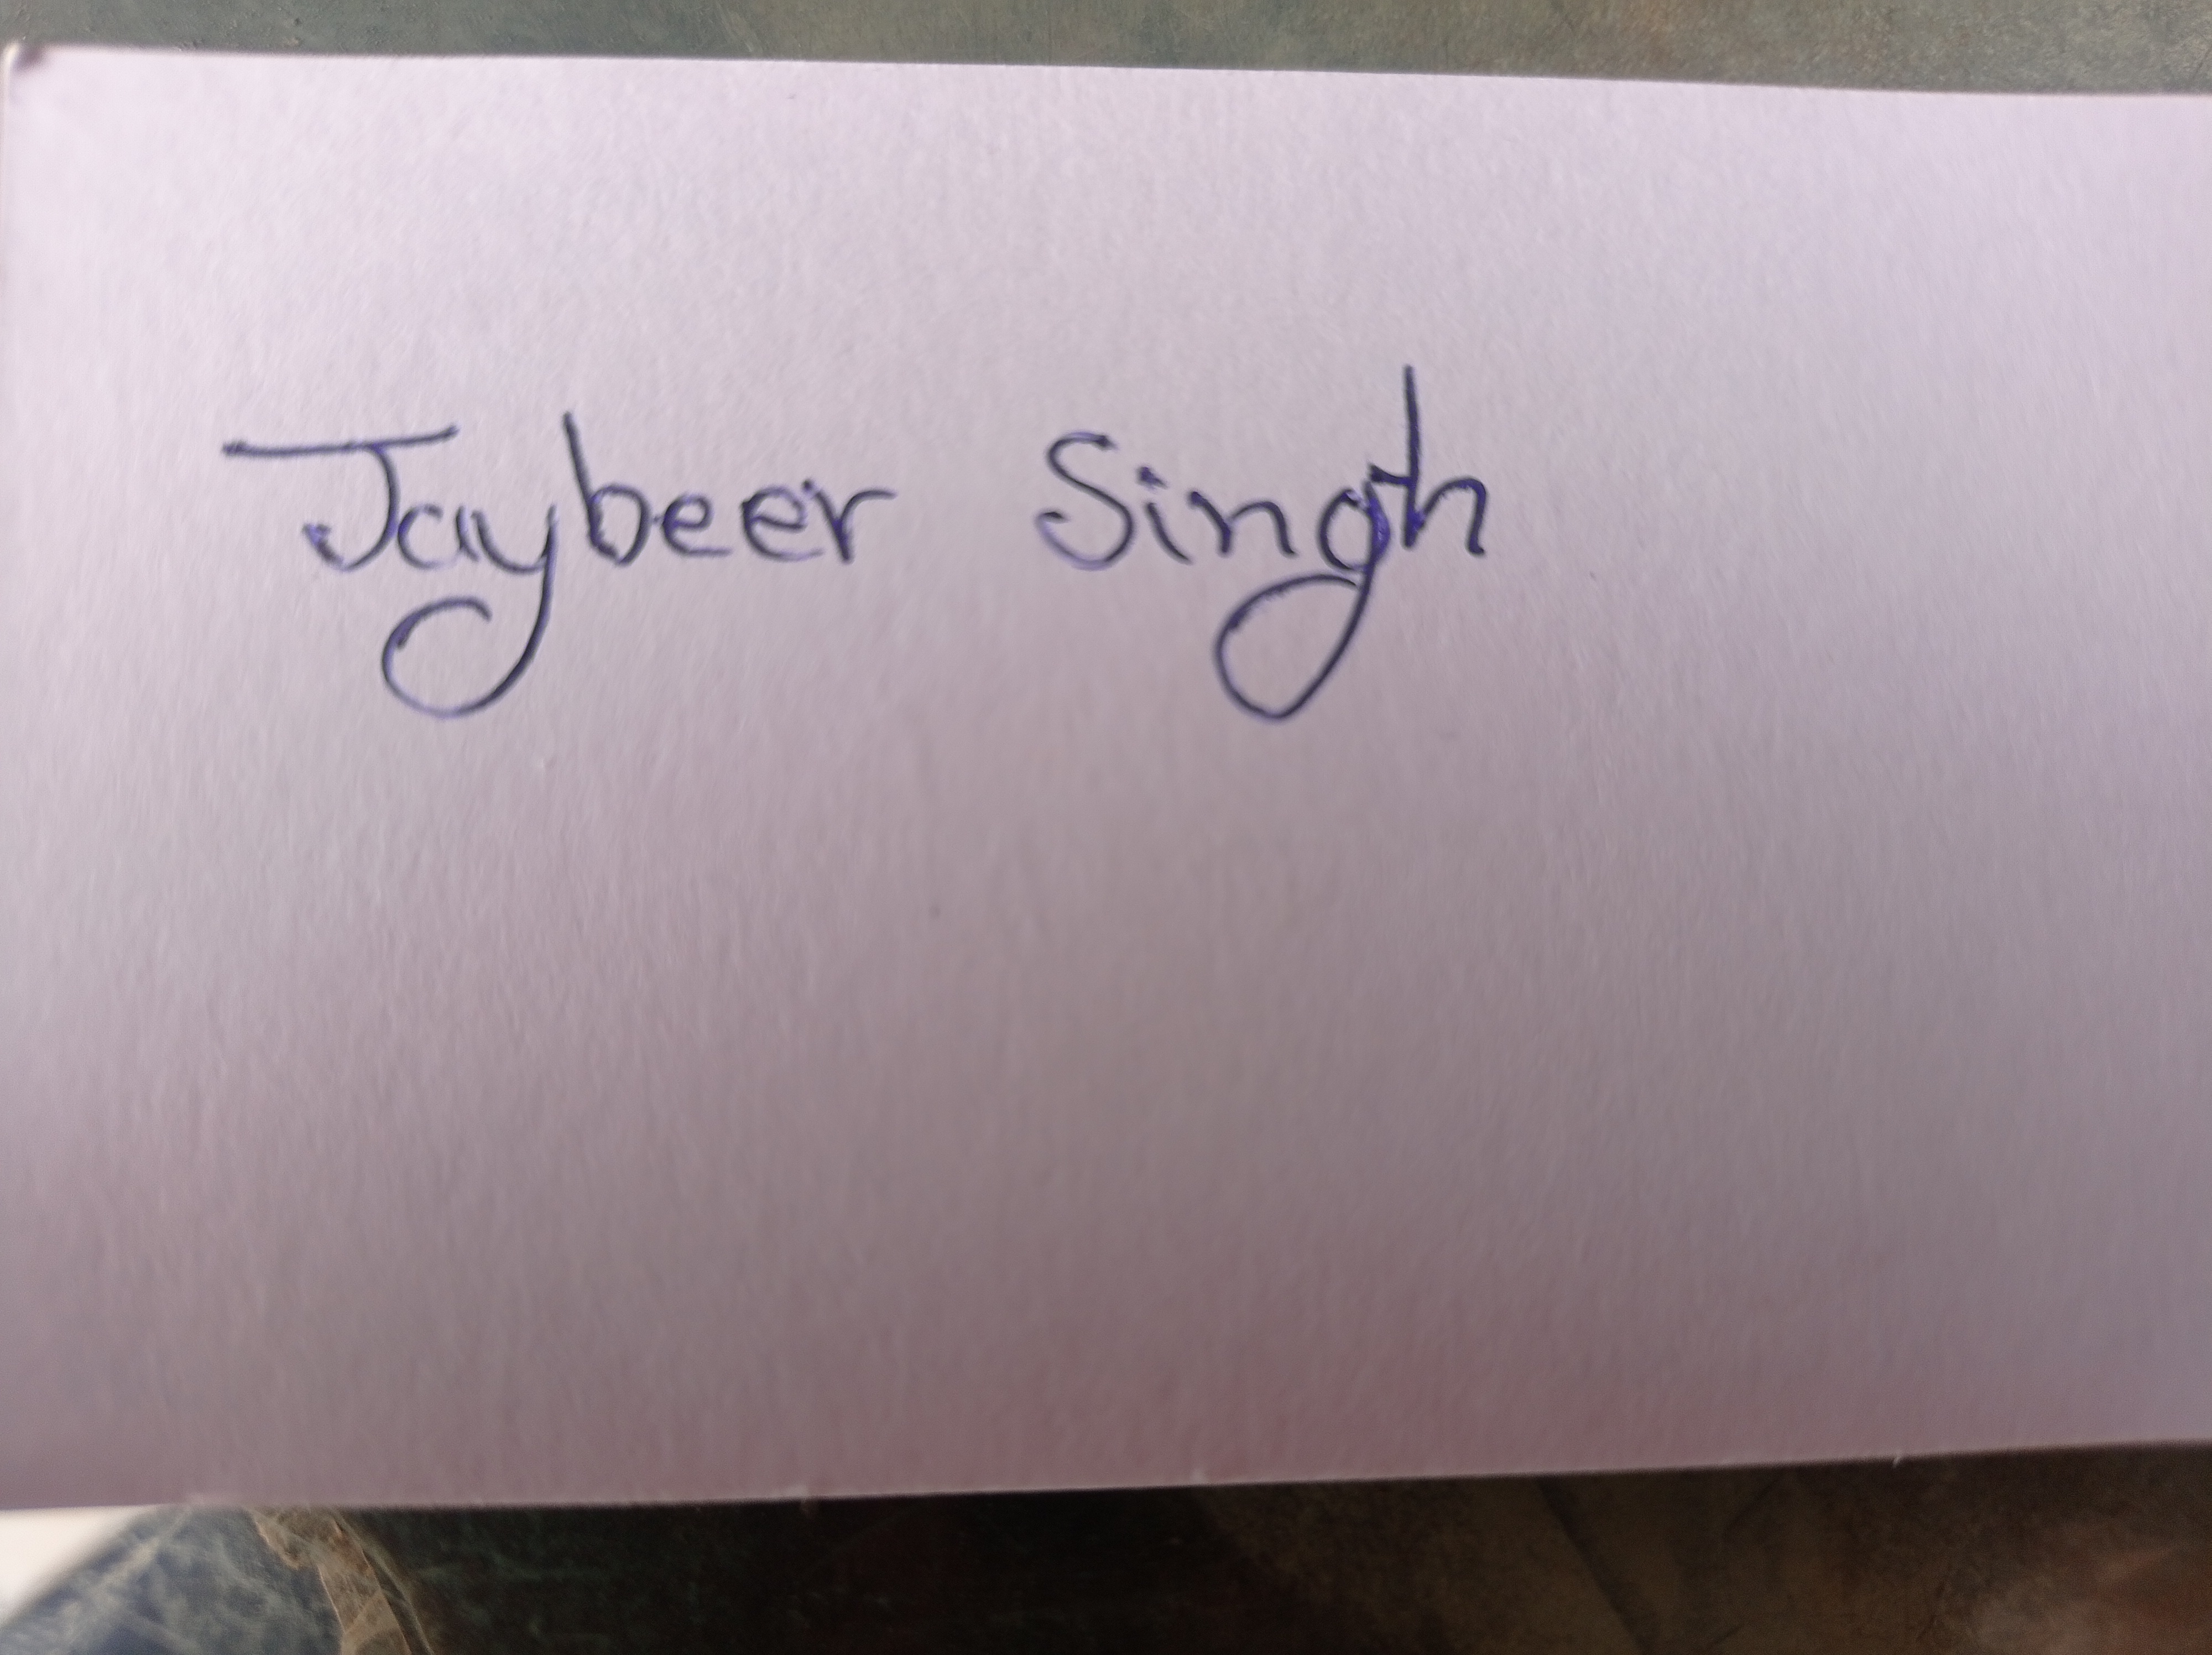 Jaybeer Singh